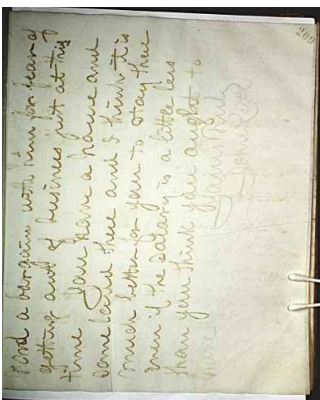 and a bargain with him for fear of
getting out of business just at this
time you have a house and
some land there and I think it is
much better for you to stay there
even if the salary is a little less
than you think you aught to
have
Yours Truly
John Rich
209